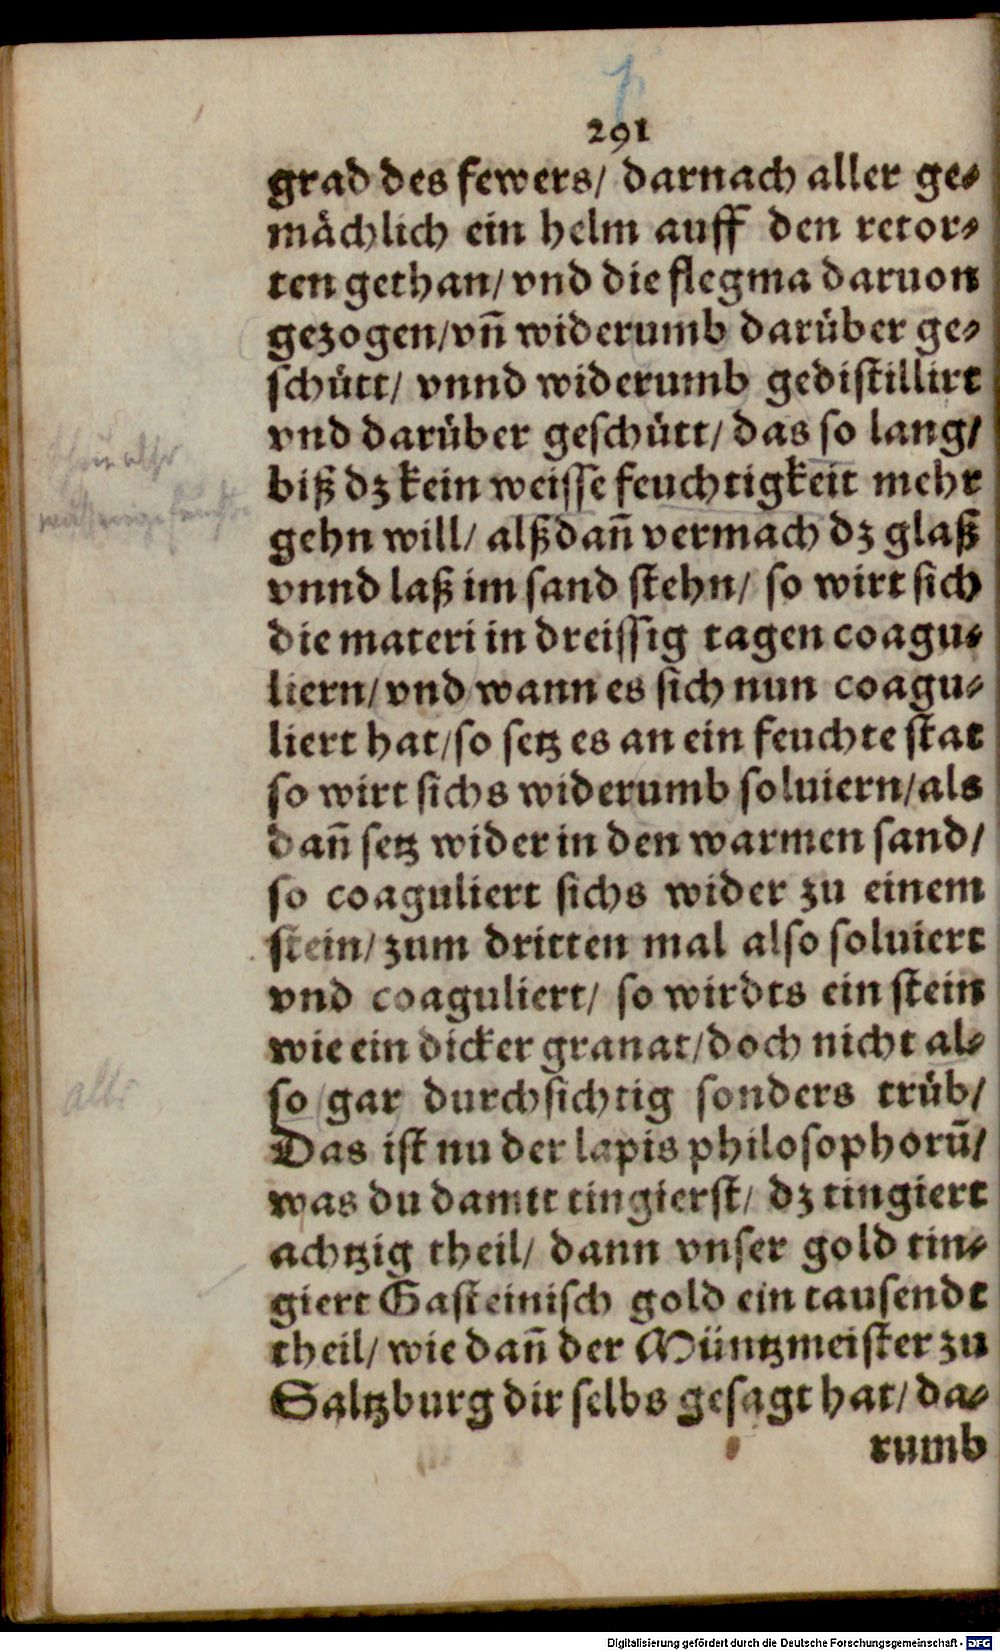 291
grad des fewers/ darnach aller ge⸗
mächlich ein helm auff den retor⸗
ten gethan/ vnd die flegma daruon
gezogen/ vñ widerumb darüber ge⸗
schütt/ vnnd widerumb gedistillirt
vnd darüber geschütt/ das so lang/
biß dz kein weisse feuchtigkeit mehr
gehn will/ alß dañ vermach dz glaß
vnnd laß im sand stehn/ so wirt sich
die materi in dreissig tagen coagu⸗
liern/ vnd wann es sich nun coagu⸗
liert hat/ so setz es an ein feuchte stat
so wirt sichs widerumb soluiern/ als
dañ setz wider in den warmen sand/
so coaguliert sichs wider zu einem
stein/ zum dritten mal also soluiert
vnd coaguliert/ so wirdts ein stein
wie ein dicker granat/ doch nicht al⸗
so gar durchsichtig sonders trüb/
Das ist nu der lapis philosophorũ/
was du damit tingierst/ dz tingiert
achtzig theil/ dann vnser gold tin⸗
giert Gasteinisch gold ein tausendt
theil/ wie dañ der Müntzmeister zu
Saltzburg dir selbs gesagt hat/ da⸗
rumb
Digitalisierung gefördert durch die Deutsche Forschungsgemeinschaft - DFG